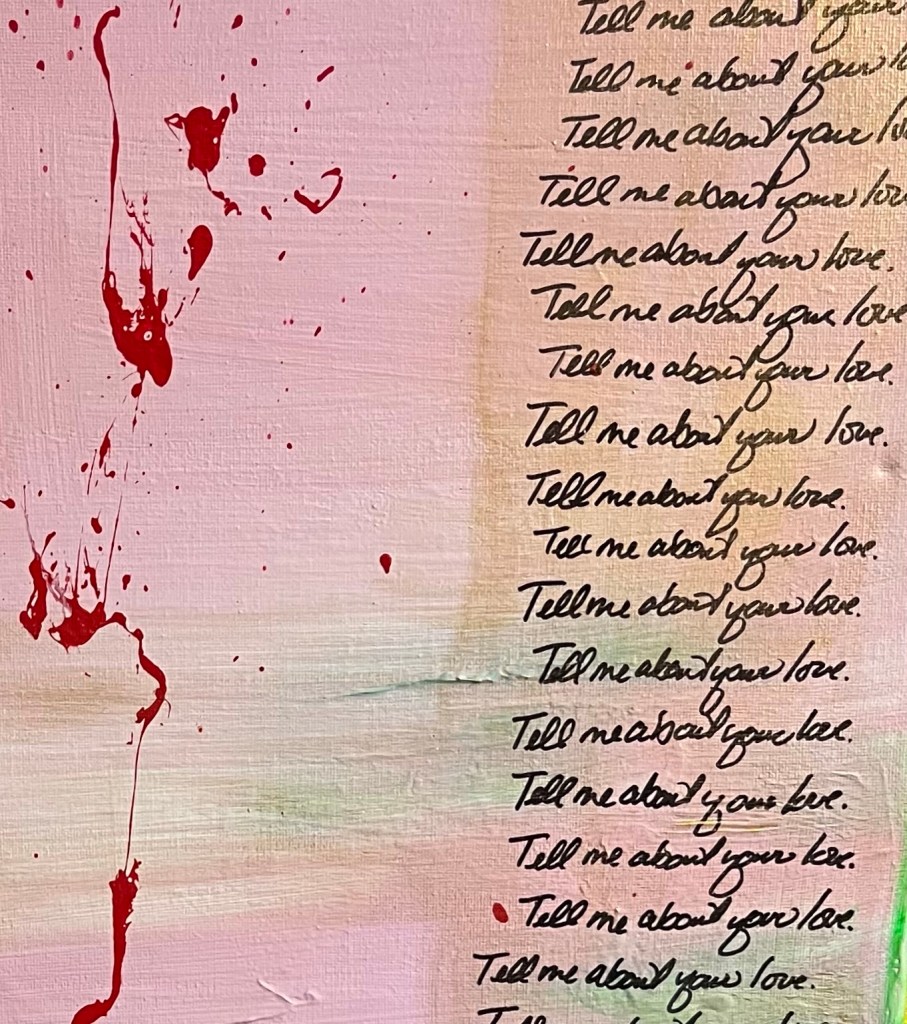 Tell me about your
Tell me about your
Tell me about your
Tell me about your love
Tell me about your love.
Tell me about your love
Tell me about your love.
Tell me about your love.
Tell me about your love.
Tell me about your love.
Tell me about your love.
Tell me about your love.
Tell me about your love.
Tell me about your love.
Tell me about your love.
Tell me about your love.
Tell me about your love.